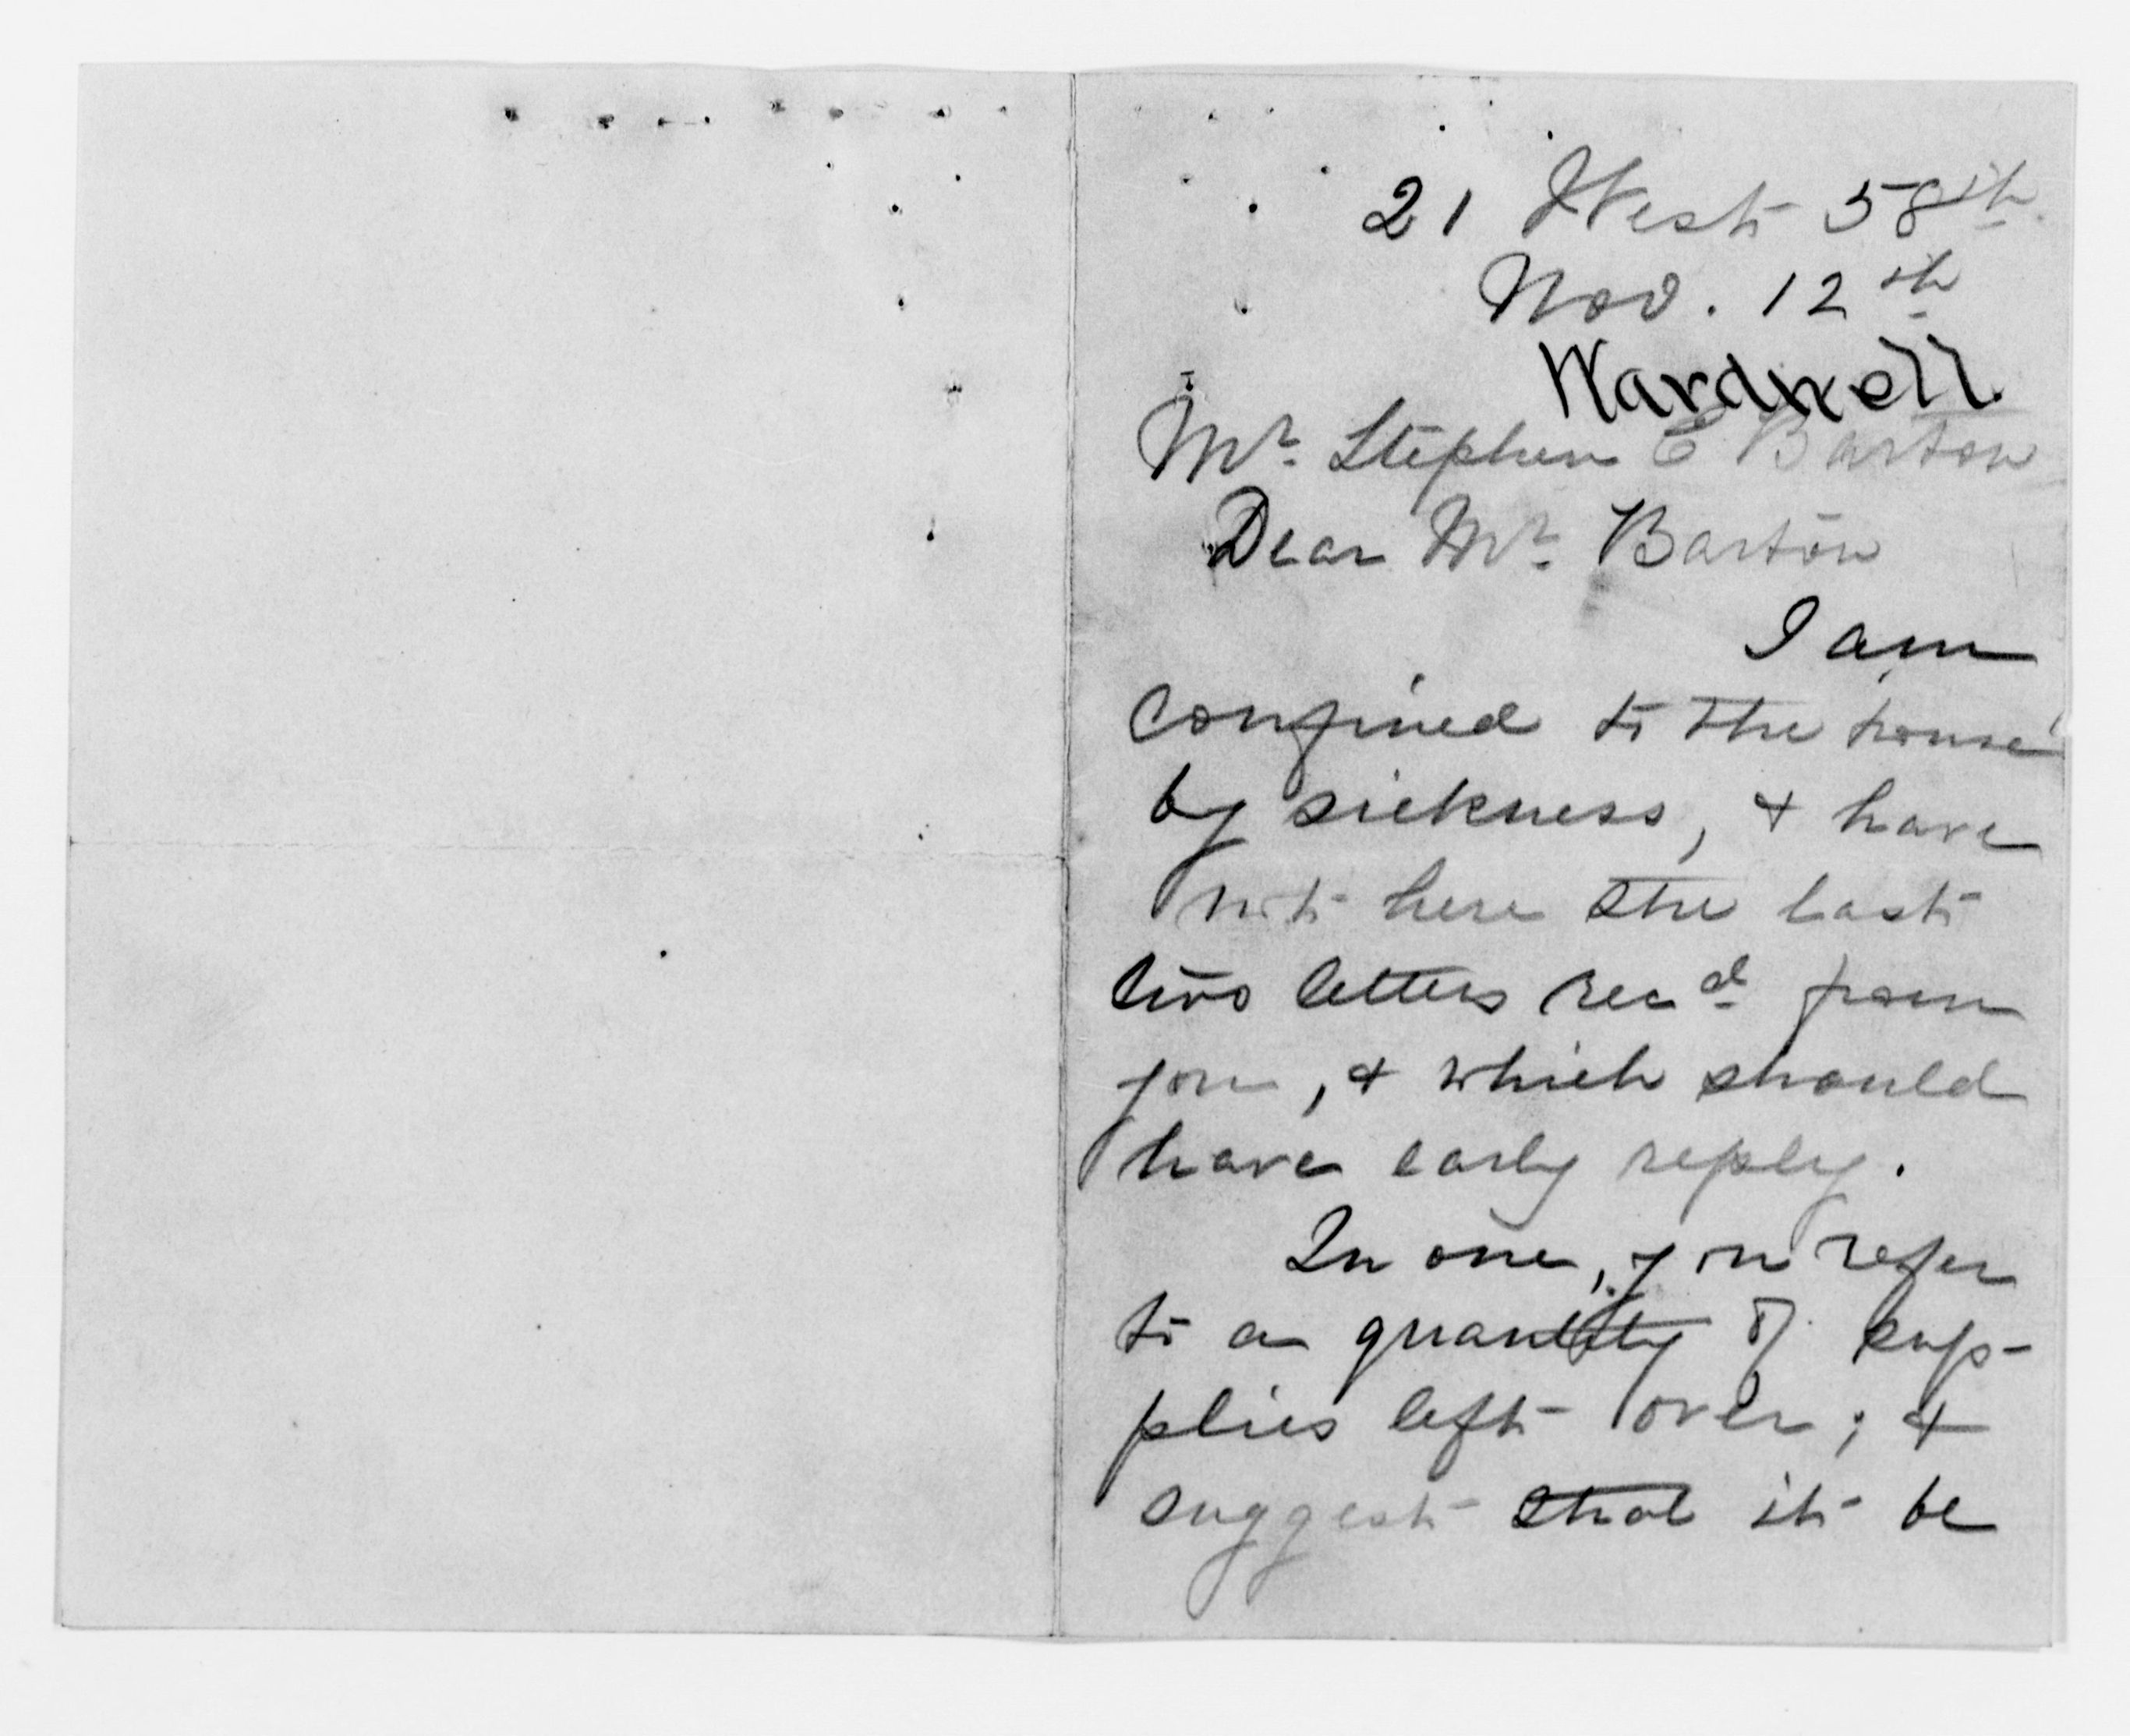 21 West 58th
Nov. 12th
Wardwell.
Mr. Stephen E Barton
Dear Mr. Barton
I am
confined to the house
by sickness, & have
not here the last
two letters recd from
you, & which should
have early reply.
In one, you refer
to a quantity of sup-
plies left over; &
suggest that it be